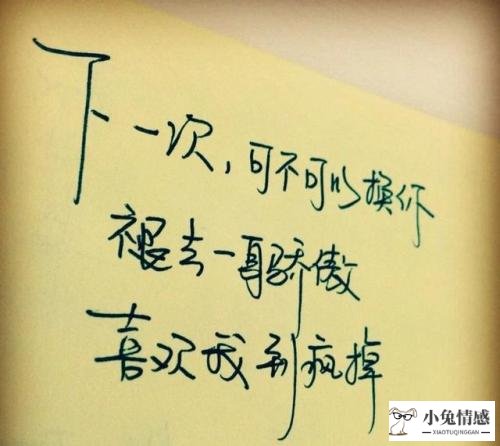 下一次，可不可以换你
褪去一身骄傲
喜欢我到疯掉
小兔情感
XIAOTUQINGGAN